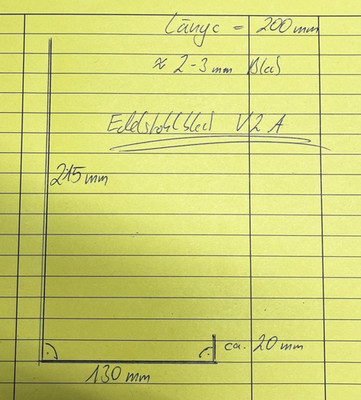 Länge = 200 mm
≈ 2-3 mm Blech
Edelstahlblech V2A
215 mm
ca. 20 mm
130 mm